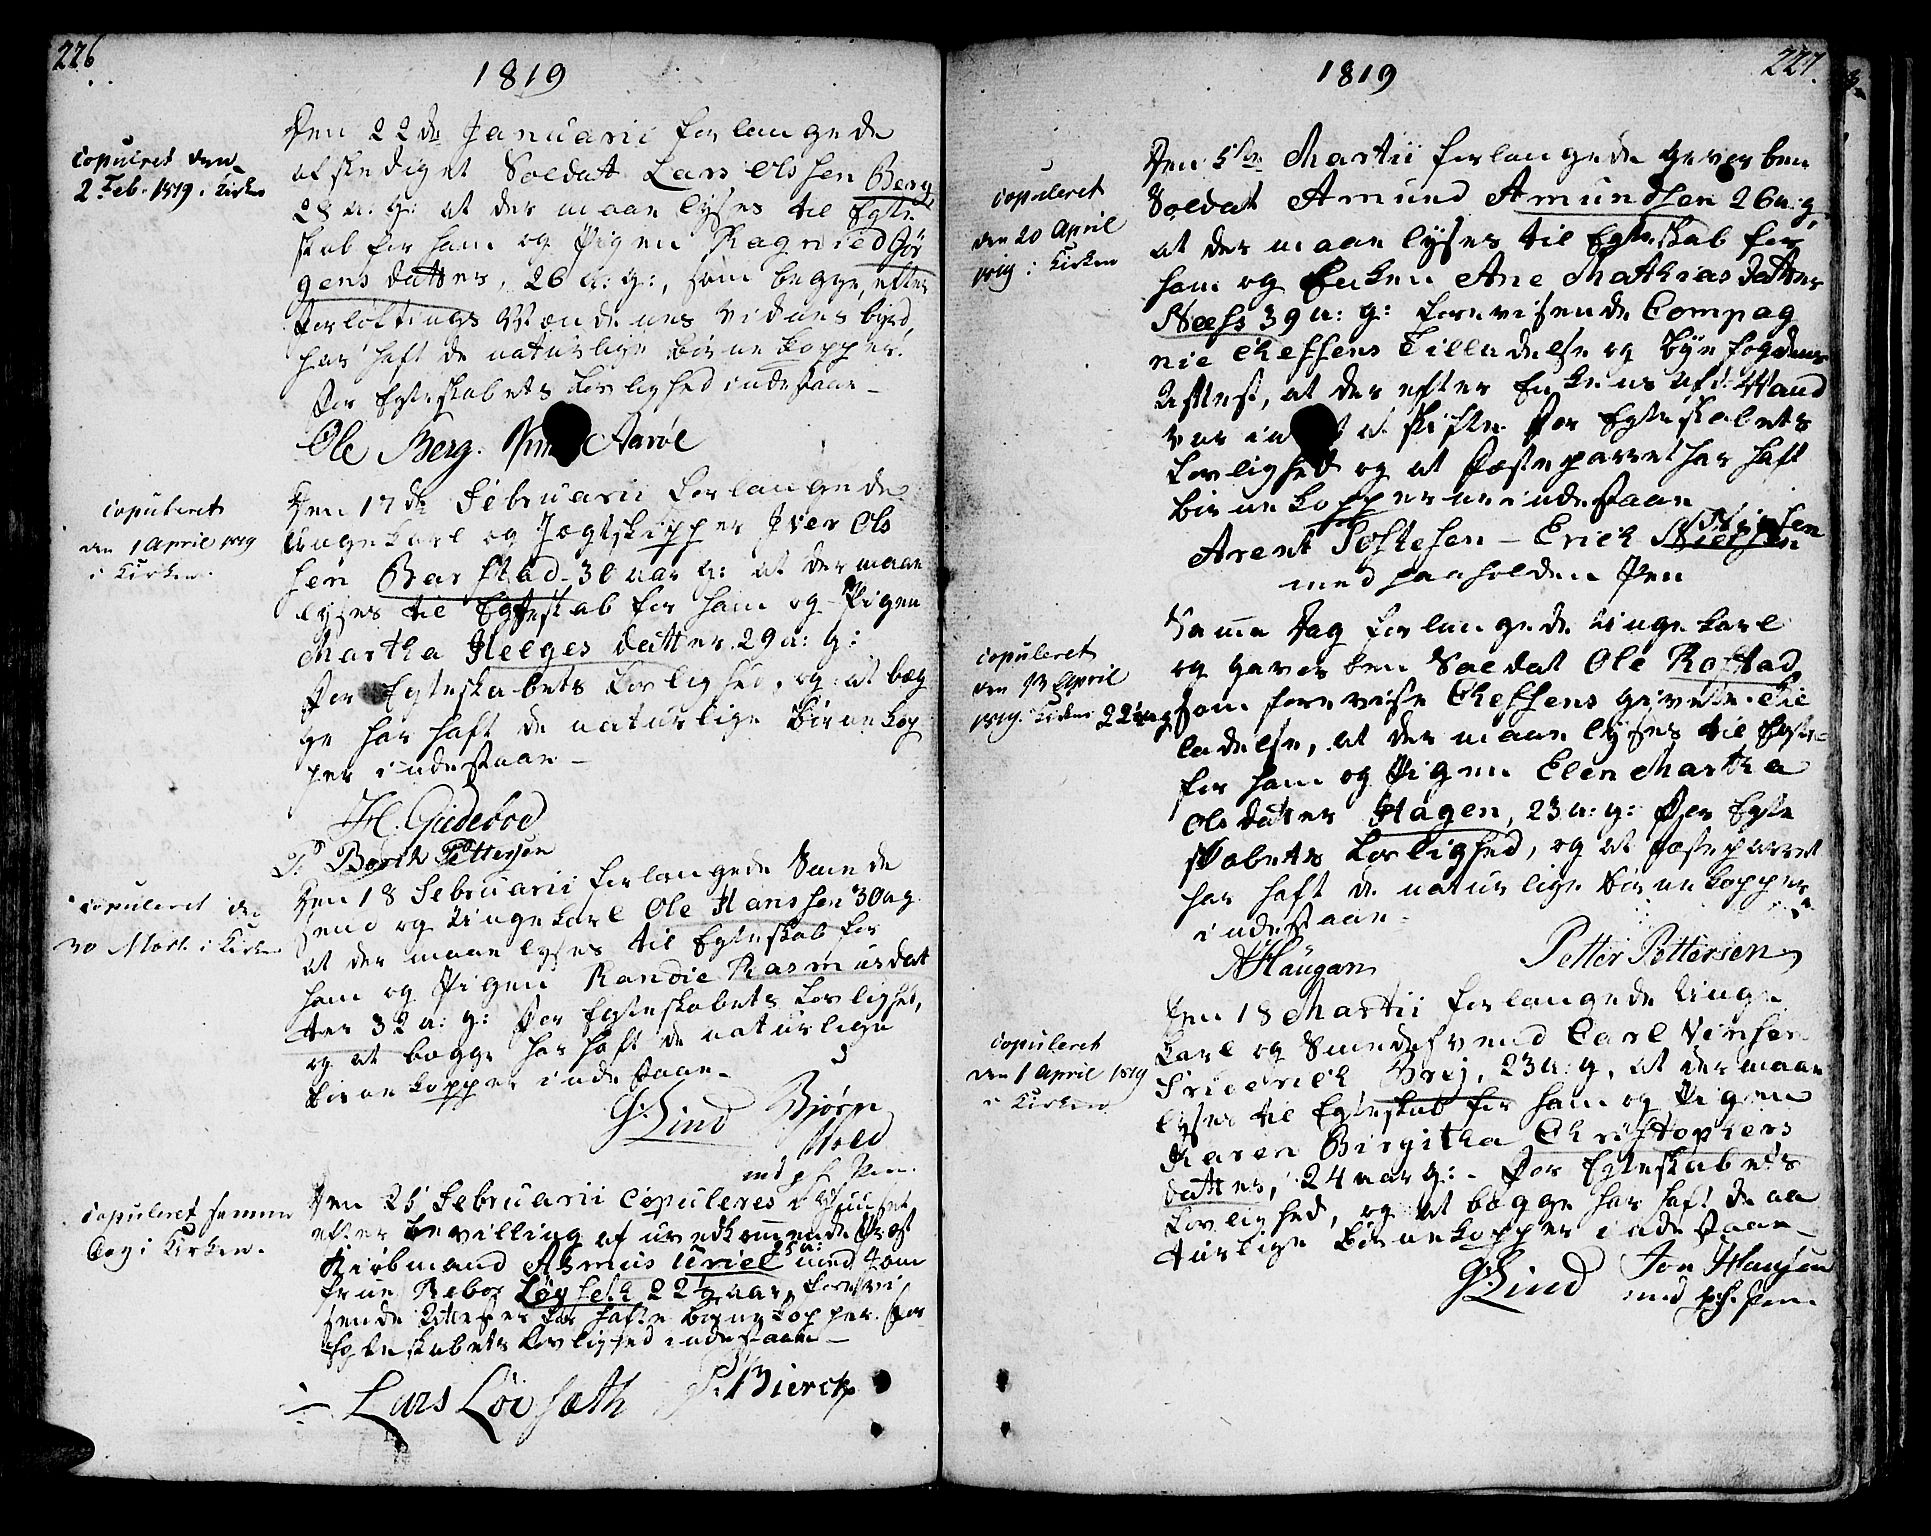 226
1819
copuleret den
2 Feb. 1819 i Kirken
Den 22de Januarii forlangede
afskediget Soldat Lars Olssen Berg
28 a: g: at der maae lyses til Egte
skab for ham og Pigen Ragnied Jør
gens datter, 26 a: g:, som begge, efter
Forlovtings Mændenes Vidnes byrd,
har haft de naturlige Børnekopper.
For Egteskabets Lovlighed indestaae –
Ole Berg. Aarøe
copuleret
den 1 April 1819
i Kirken.
Den 17de Februarii forlangede
Ungekarl og Jægtskipper Iver Ols
sen Barstad 30 aar g: at der maae
lyses til Egteskab for ham og Pigen
Martha Helges datter 29 a: g:
For Egteskabets Lovlighed, og at bæg
ge har haft de naturlige Børnekop
per indestaae –
H. Gideboe
P. Borch Pettersen
copuleret den
30 Mart. i Kirken
Den 18 Februarii forlangede Smede
svend og Ungekarl Ole Hanssen 30 a g.
at der maae lyses til Egteskab for
ham og Pigen Randie Rasmusdat
ter 32 a: g: For Egteskabets Lovlighed,
og at begge har haft de naturlige
Børnekopper indestaae –
G Lind Bjørn
Hold
med p h Pen.
copuleret samme
Dag i Kirken.
Den 25 Februarii copuleres i Huuset
efter bevilling af uvedkommende Præst
Kiøbmand Asmus Uriel 25 a: med Jom
frue Rebor Løvseth 22½ aar, forevi
sende Attester for hafte Børnekopper. For
Egteskabets Lovlighed indestaae –
Lars Løvsæth P. Bierck
227.
1819
copuleret
den 20 April
1819 i Kirken
Den 5te Martii forlangede geworben
Soldat Amund Amundsen 26 a: g.
at der maae lyses til Egteskab for
ham og Enken Ane Mathias datter
Næss 39 a: g: forevisende Compag
nie Cheffens Tilladelse og Byefogdens
Attest, at der efter Enkens afd: Mand
var at skifte. For Egteskabets
Lovlighed og at Fæsteparret har haft
Børnekopperne indestaae
Arent Tostesen – Erich Nielsen
med paaholden Pen
copuleret
den 13 April
1819 i Kirken
Samme Dag forlangede Ungekarl
og geworben Soldat Ole Rofstad
22 a g som foreviste Cheffens givne Til
ladelse, at der maae lyses til Egte=
for ham og Pigen Elen Martha
Ols datter Hagen, 23 a: g: For Egte
skabets Lovlighed, og at Fæsteparret
har haft de naturlige Børnekopper
indestaae.
A Haugan Petter Pettersen
copuleret
den 1 April 1819
i Kirken
Den 18 Martii forlangede Unge
karl og Smedesvend Carl
Friderich 23 a: g, at der maae
lyses til Egteskab for ham og Pigen
Karen Birgitha Christophers
datter, 24 aar g: – For Egteskabets
Lovlighed, og at begge har haft de na
turlige Børnekopper indestaae –
G Lind Jon Hansen
med p. h. Pen.